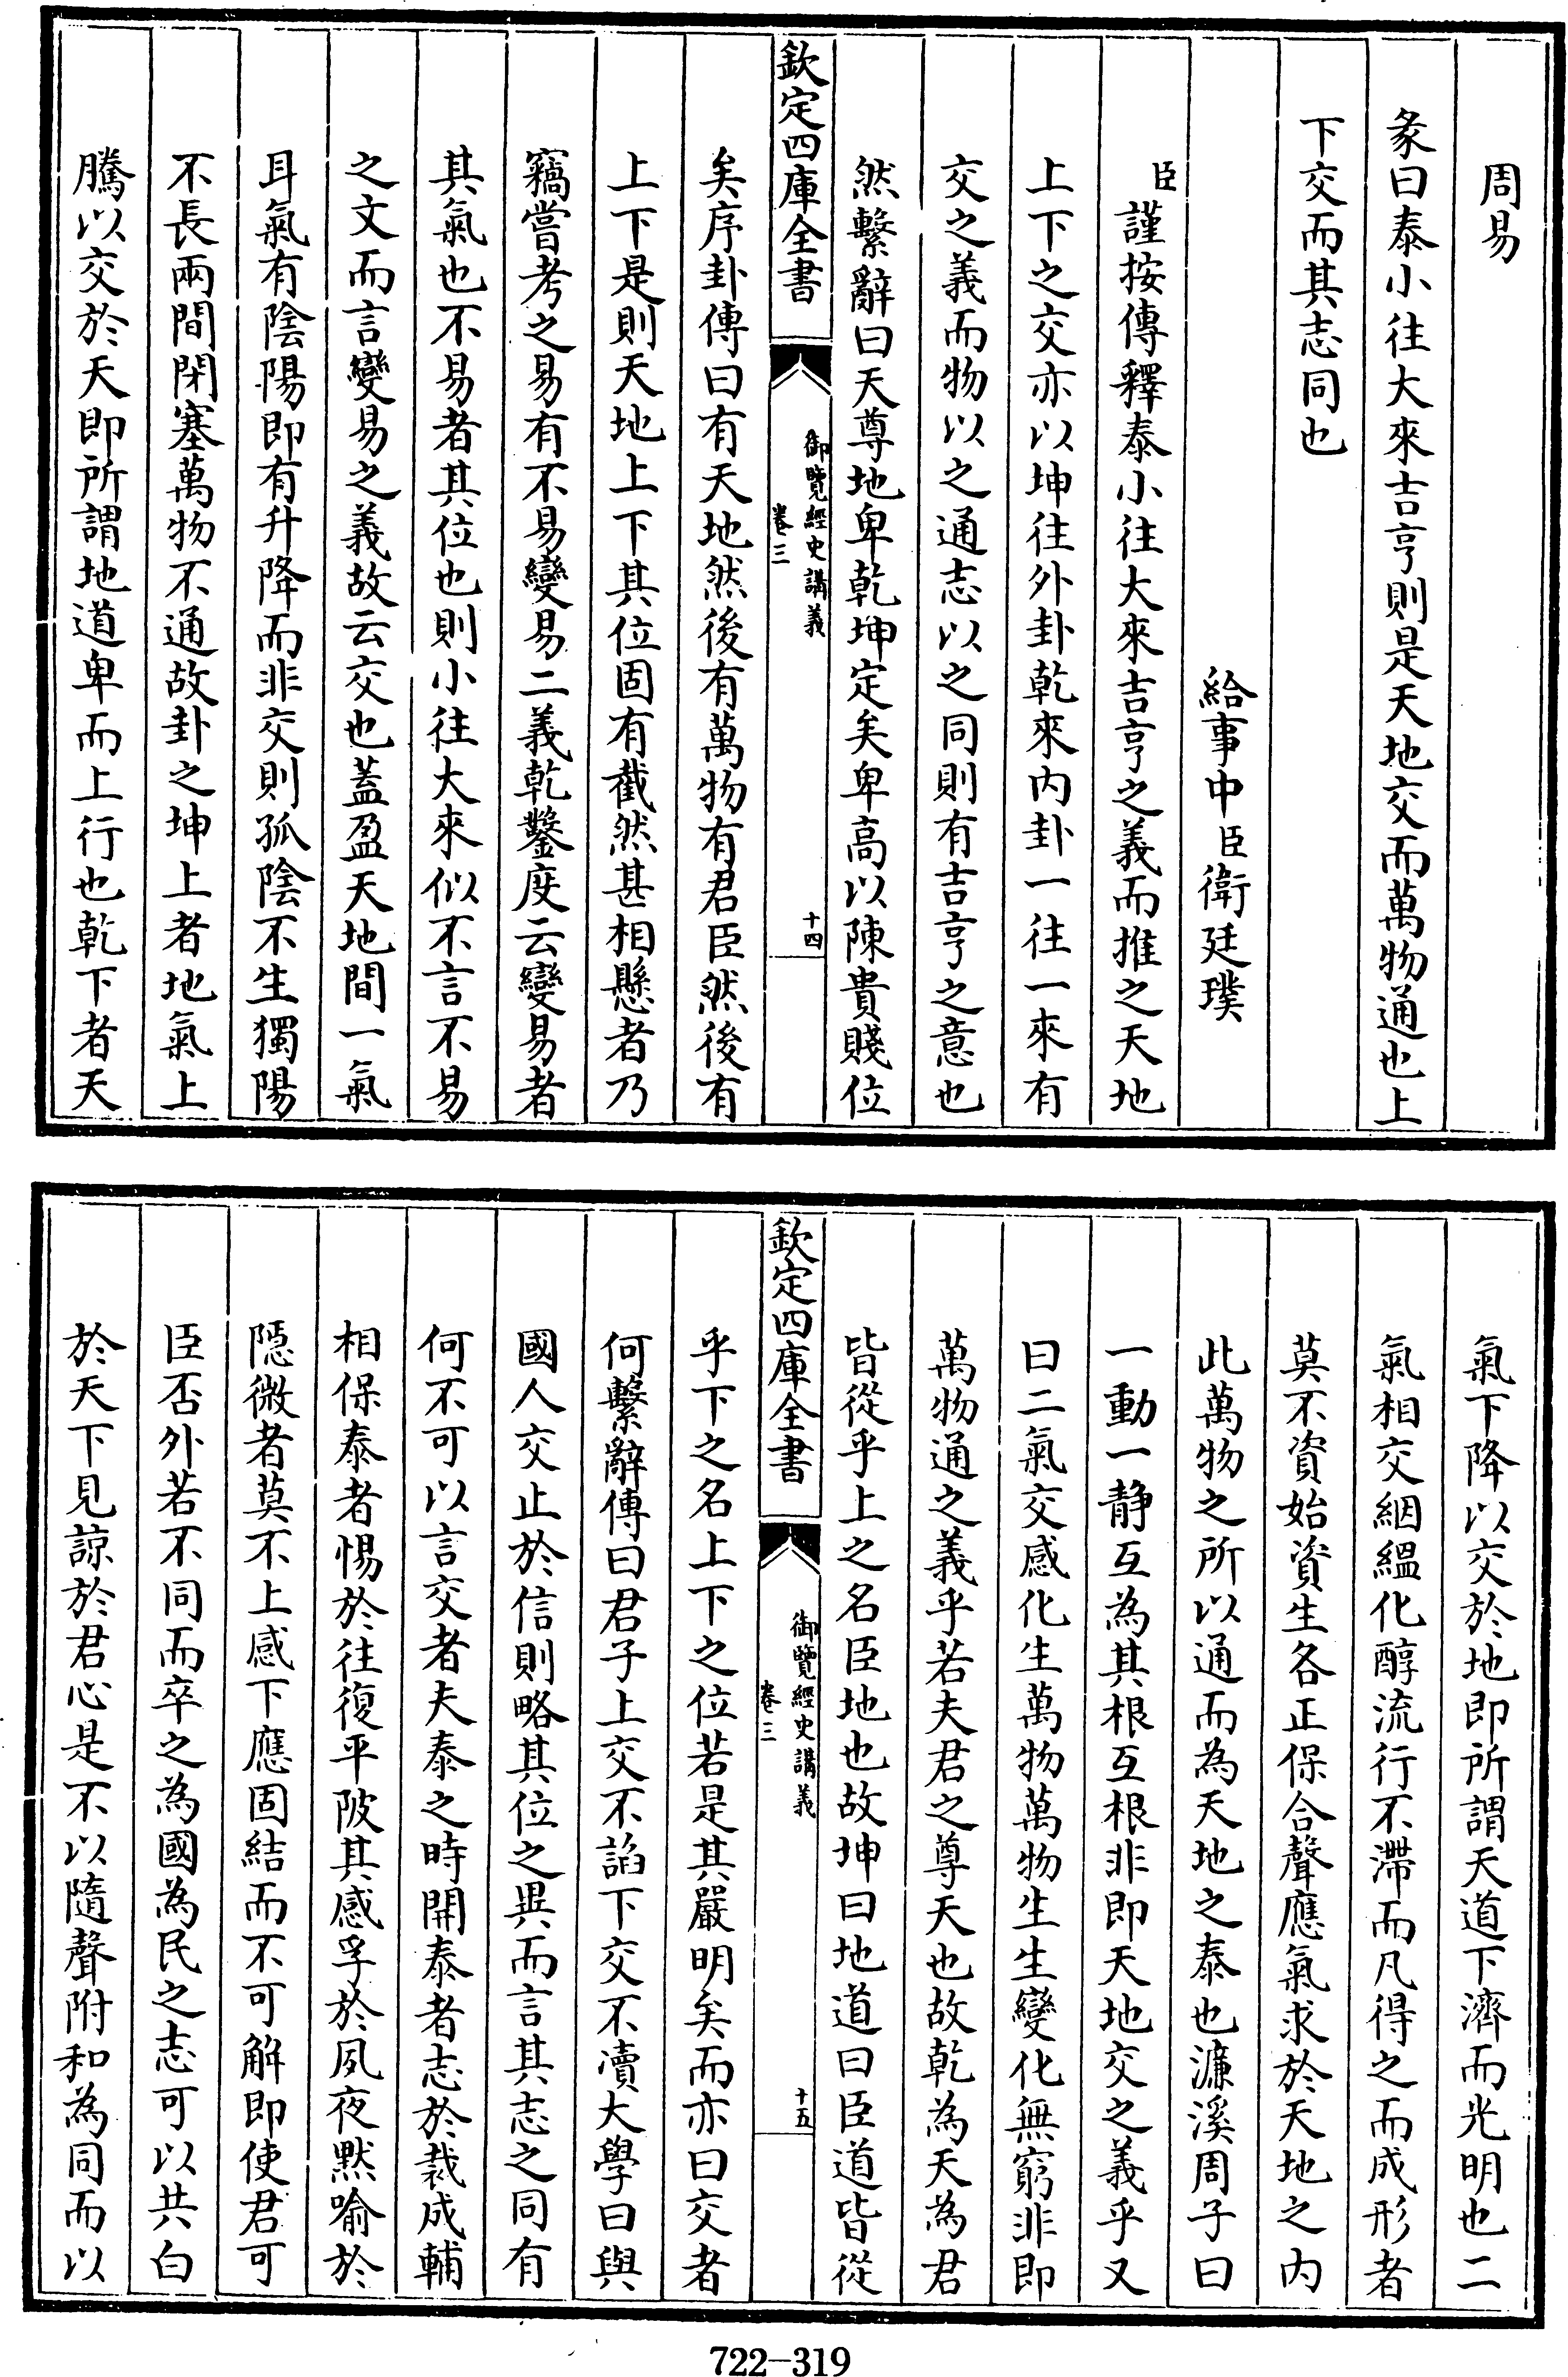 周易
彖曰泰小往大來吉亨則是天地交而萬物通也上
下交而其志同也
給事中臣衛廷璞
臣謹按傳釋泰小往大來吉亨之義而推之天地
上下之交亦以坤往外卦乾來内卦一往一來有
交之義而物以之通志以之同則有吉亨之意也
然繫辭曰天尊地卑乾坤定矣卑高以陳貴賤位
欽定四庫全書
御覽經史講義
卷三
十四
矣序卦傳曰有天地然後有萬物有君臣然後有
上下是則天地上下其位固有截然甚相懸者乃
竊嘗考之易有不易變易二義乾鑿度云變易者
其氣也不易者其位也則小往大來似不言不易
之文而言變易之義故云交也蓋盈天地間一氣
耳氣有陰陽即有升降而非交則孤陰不生獨陽
不長兩間閉塞萬物不通故卦之坤上者地氣上
騰以交於天即所謂地道卑而上行也乾下者天
氣下降以交於地即所謂天道下濟而光明也二
氣相交絪縕化醇流行不滯而凡得之而成形者
莫不資始資生各正保合聲應氣求於天地之内
此萬物之所以通而為天地之泰也濂溪周子曰
一動一静互為其根互根非即天地交之義乎又
曰二氣交感化生萬物萬物生生變化無窮非即
萬物通之義乎若夫君之尊天也故乾為天為君
皆從乎上之名臣地也故坤曰地道曰臣道皆從
欽定四庫全書
御覽經史講義
卷三
十五
乎下之名上下之位若是其嚴明矣而亦曰交者
何繫辭傳曰君子上交不諂下交不瀆大學曰與
國人交止於信則略其位之異而言其志之同有
何不可以言交者夫泰之時開泰者志於裁成輔
相保泰者惕於往復平陂其感孚於夙夜黙喻於
隱微者莫不上感下應固結而不可解即使君可
臣否外若不同而卒之為國為民之志可以共白
於天下見諒於君心是不以隨聲附和為同而以
722-319